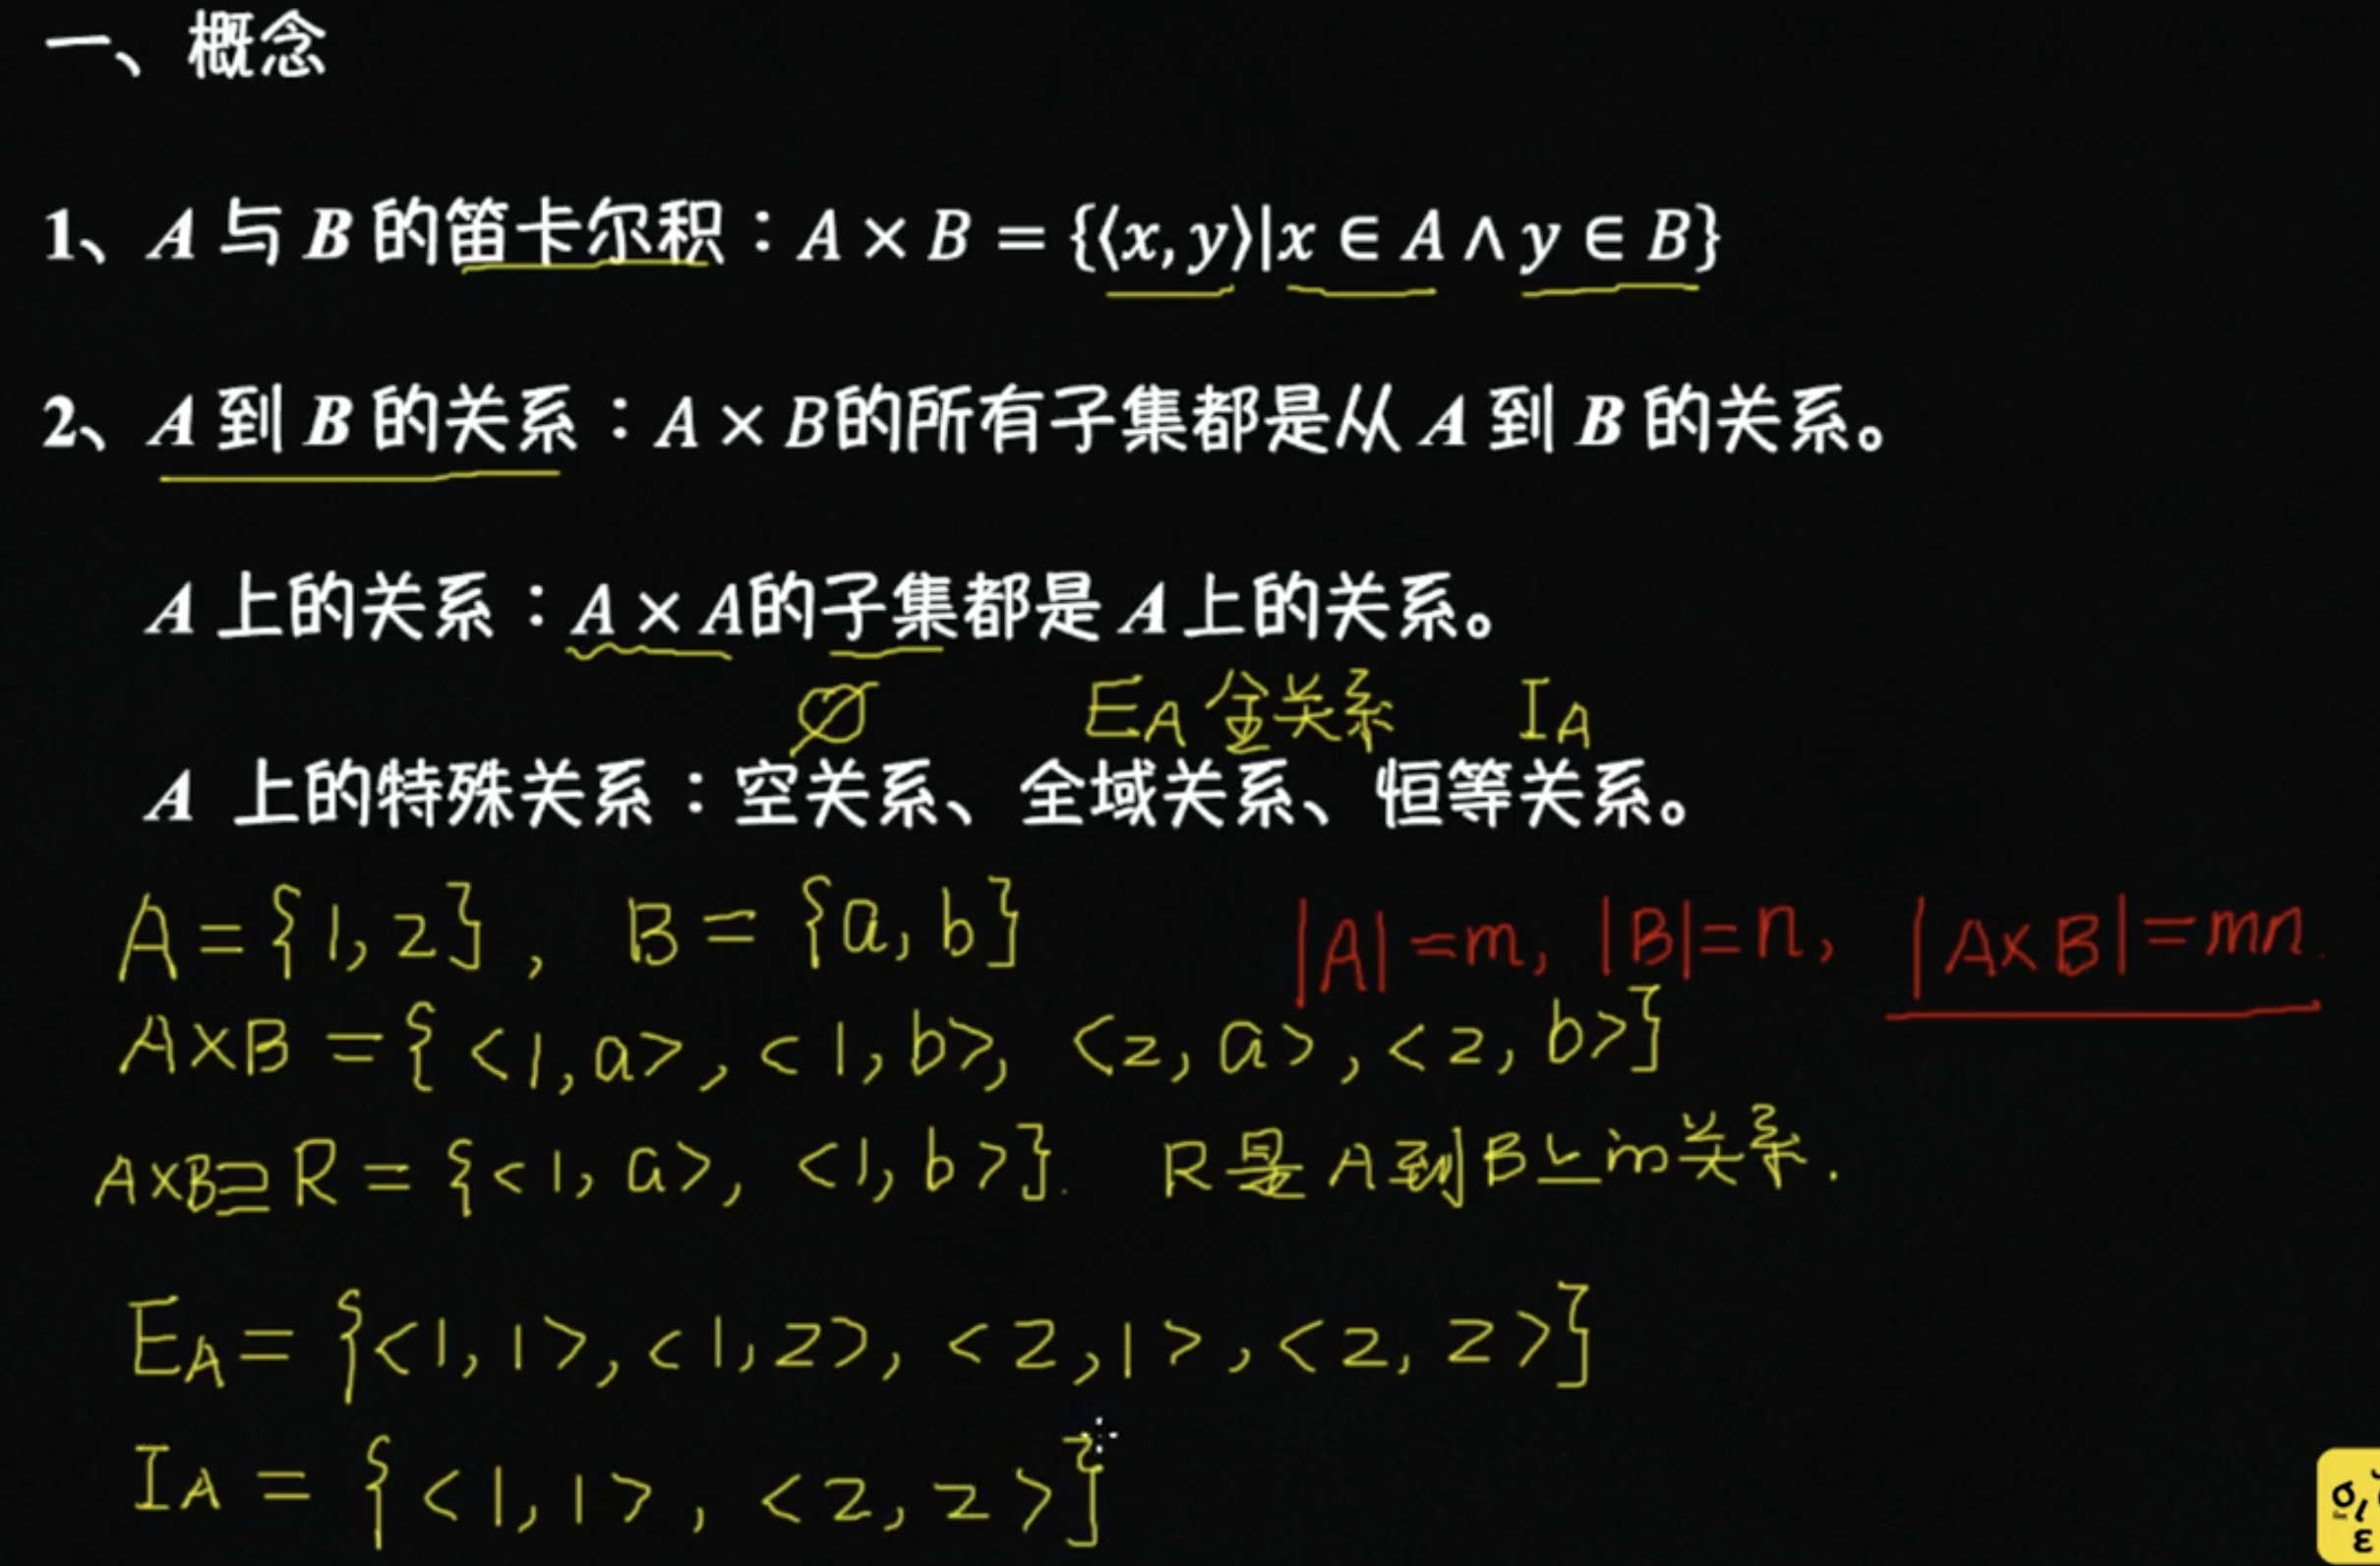 一、概念
1、A 与 B 的笛卡尔积：A × B = {⟨x, y⟩|x ∈ A ∧ y ∈ B}
2、A 到 B 的关系：A × B的所有子集都是从 A 到 B 的关系。
A 上的关系：A × A的子集都是 A 上的关系。
∅ E_A 全关系 I_A
A 上的特殊关系：空关系、全域关系、恒等关系。
A={1,2}, B={a,b} |A|=m, |B|=n, |A×B|=mn.
A×B={<1,a>,<1,b>,<2,a>,<2,b>}
A×B⊇R={<1,a>,<1,b>}. R是A到B上的关系.
E_A={<1,1>,<1,2>,<2,1>,<2,2>}
I_A={<1,1>,<2,2>}